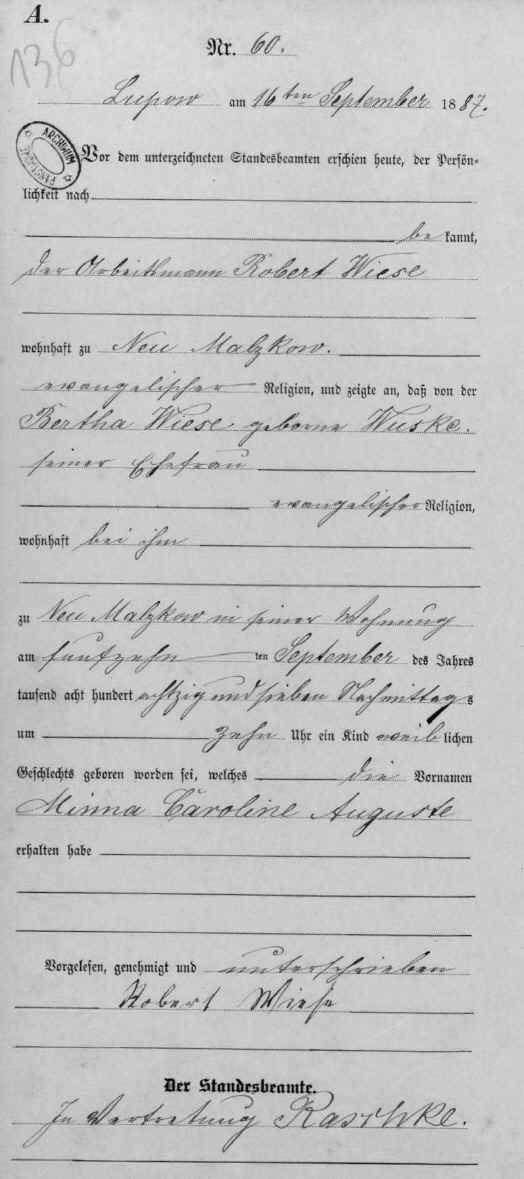 A.
136
Nr. 60.
Lupow am 16ten September 1887.
ARCHIWUM
Vor dem unterzeichneten Standesbeamten erschien heute, der Persön-
lichkeit nach
be kannt,
der Arbeitsmann Robert Wiese
wohnhaft zu Neu Malzkow.
evangelischer Religion, und zeigte an, daß von der
Bertha Wiese geborne Wuske.
seiner Ehefrau
evangelischer Religion,
wohnhaft bei ihm
zu Neu Malzkow in seiner Wohnung
am funfzehn ten September des Jahres
tausend acht hundert achtzig und sieben Nachmittags
um zehn Uhr ein Kind weiblichen
Geschlechts geboren worden sei, welches die Vornamen
Minna Caroline Auguste
erhalten habe
Vorgelesen, genehmigt und unterschrieben
Robert Wiese
Der Standesbeamte.
In Vertretung Raschke.